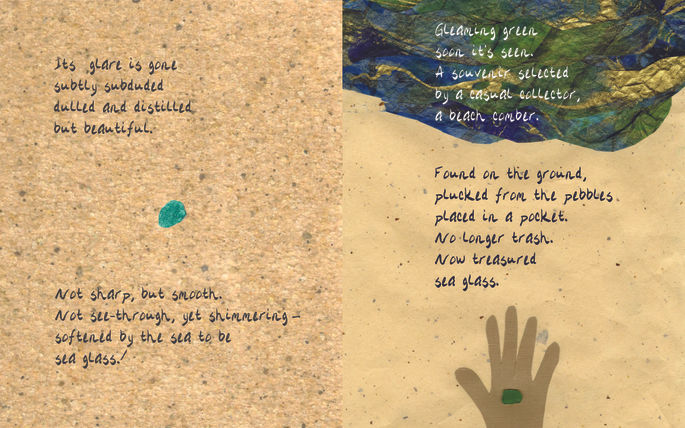 Its glare is gone
subtly subduded
dulled and distilled
but beautiful.
Not sharp, but smooth.
Not see-through, yet shimmering –
softened by the sea to be
sea glass!
Gleaming green
soon it's seen.
A souvenir selected
by a casual collector,
a beach comber.
Found on the ground,
plucked from the pebbles
placed in a pocket.
No longer trash.
Now treasured
sea glass.